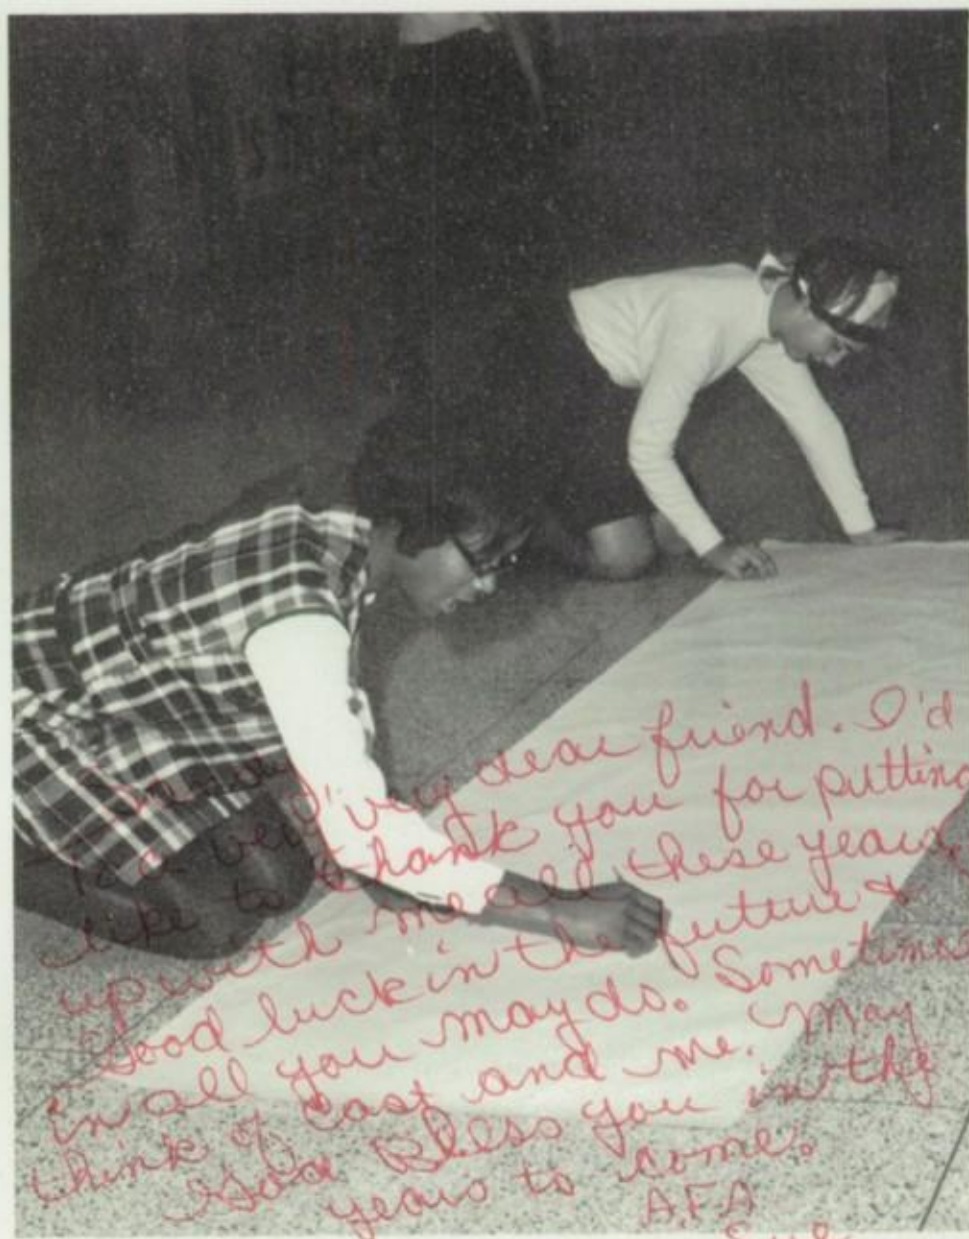 To a very very dear friend. I'd
like to thank you for putting
up with me all these years,
Good luck in the future &
in all you may do. Sometimes
think of East and me. May
God Bless you in the
years to come.
AFA
Sue